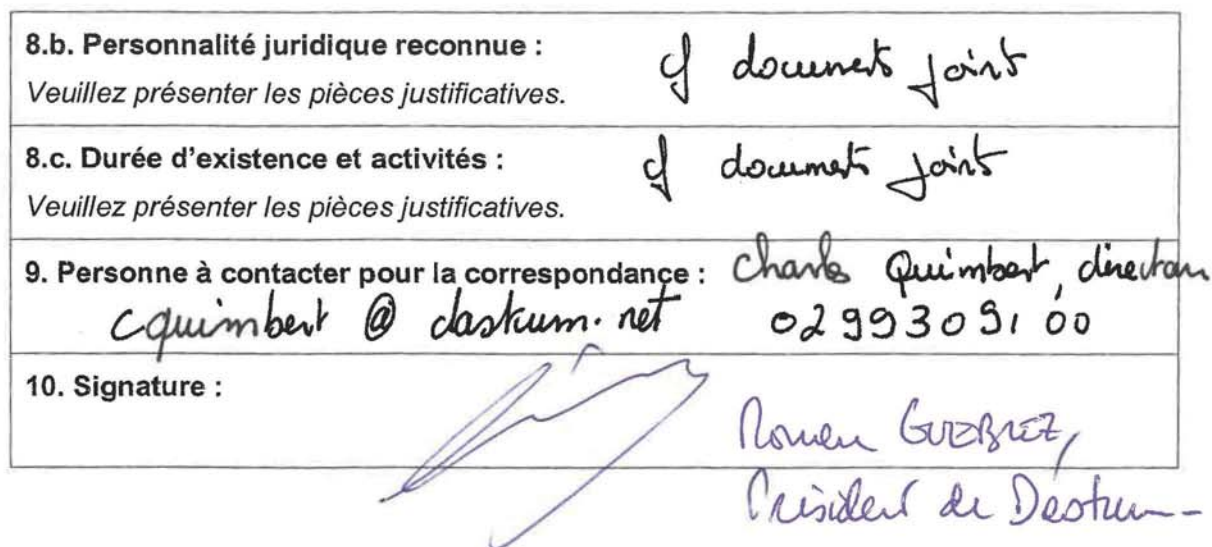 8.b. Personnalité juridique reconnue :
cf documents joints
Veuillez présenter les pièces justificatives.
8.c. Durée d'existence et activités :
cf documents joints
Veuillez présenter les pièces justificatives.
9. Personne à contacter pour la correspondance : Charles Quimbert, directeur
cquimbert @ dastum.net 0299309100
10. Signature :
Président de Dastum